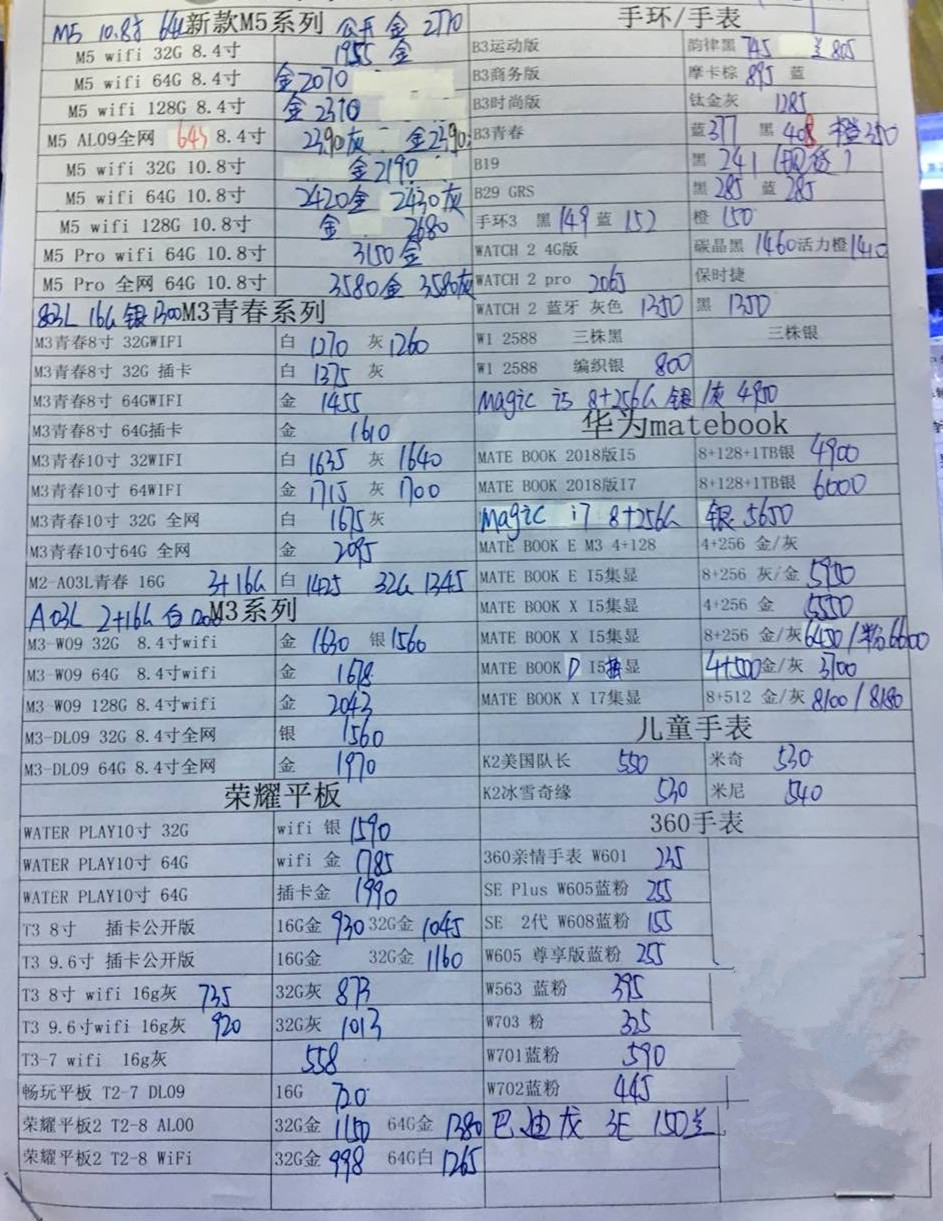 M5 10.8寸 64G 新款M5系列 公开 金 2770
M5 wifi 32G 8.4寸 1955 金
M5 wifi 64G 8.4寸 金2070
M5 wifi 128G 8.4寸 金 2310
M5 AL09全网 64G 8.4寸 2390灰 金2390
M5 wifi 32G 10.8寸 金2190
M5 wifi 64G 10.8寸 2420金 2430灰
M5 wifi 128G 10.8寸 金 2680
M5 Pro wifi 64G 10.8寸 3150金
M5 Pro 全网 64G 10.8寸 3580金 3580灰
803L 16G 银1300 M3青春系列
M3青春8寸 32GWIFI 白 1270 灰1260
M3青春8寸 32G 插卡 白 1375 灰
M3青春8寸 64GWIFI 金 1455
M3青春8寸 64G插卡 金 1610
M3青春10寸 32WIFI 白 1635 灰 1640
M3青春10寸 64WIFI 金 1715 灰 1700
M3青春10寸 32G 全网 白 1675 灰
M3青春10寸64G 全网 金 2095
M2-A03L青春 16G 3+16G 白 1425 32G 1345
A03L 2+16G 白 M3系列
M3-W09 32G 8.4寸wifi 金 1630 银1560
M3-W09 64G 8.4寸wifi 金 1678
M3-W09 128G 8.4寸wifi 金 2043
M3-DL09 32G 8.4寸全网 银 1560
M3-DL09 64G 8.4寸全网 金 1970
荣耀平板
WATER PLAY10寸 32G wifi 银 1590
WATER PLAY10寸 64G wifi 金 1785
WATER PLAY10寸 64G 插卡金 1990
T3 8寸 插卡公开版 16G金 930 32G金 1045
T3 9.6寸 插卡公开版 16G金 32G金 1160
T3 8寸 wifi 16g灰 735 32G灰 873
T3 9.6寸wifi 16g灰 920 32G灰 1013
T3-7 wifi 16g灰 558
畅玩平板 T2-7 DL09 16G 720
荣耀平板2 T2-8 AL00 32G金 1150 64G金 1380
荣耀平板2 T2-8 WiFi 32G金 998 64G白 1265
手环/手表
B3运动版 韵律黑 745 兰 805
B3商务版 摩卡棕 895 蓝
B3时尚版 钛金灰 1285
B3青春 蓝377 黑 408 橙350
B19 黑 241
B29 GRS 黑 285 蓝 285
手环3 黑 149 蓝 152 橙 150
WATCH 2 4G版 碳晶黑 1460活力橙1410
WATCH 2 pro 2065 保时捷
WATCH 2 蓝牙 灰色 1350 黑 1350
W1 2588 三株黑 三株银
W1 2588 编织银 800
Magic i5 8+256G 银/灰 4900
华为matebook
MATE BOOK 2018版I5 8+128+1TB银 4900
MATE BOOK 2018版I7 8+128+1TB银 6000
Magic i7 8+256G 银 5650
MATE BOOK E M3 4+128 4+256 金/灰
MATE BOOK E I5集显 8+256 灰/金 5900
MATE BOOK X I5集显 4+256 金 5550
MATE BOOK X I5集显 8+256 金/灰6450/粉6600
MATE BOOK D I5独显 4+500金/灰 3700
MATE BOOK X I7集显 8+512 金/灰 8100/8180
儿童手表
K2美国队长 550 米奇 530
K2冰雪奇缘 530 米尼 540
360手表
360亲情手表 W601 235
SE Plus W605蓝粉 255
SE 2代 W608蓝粉 155
W605 尊享版蓝粉 255
W563 蓝粉 395
W703 粉 325
W701蓝粉 590
W702蓝粉 445
巴迪龙 3E 150兰